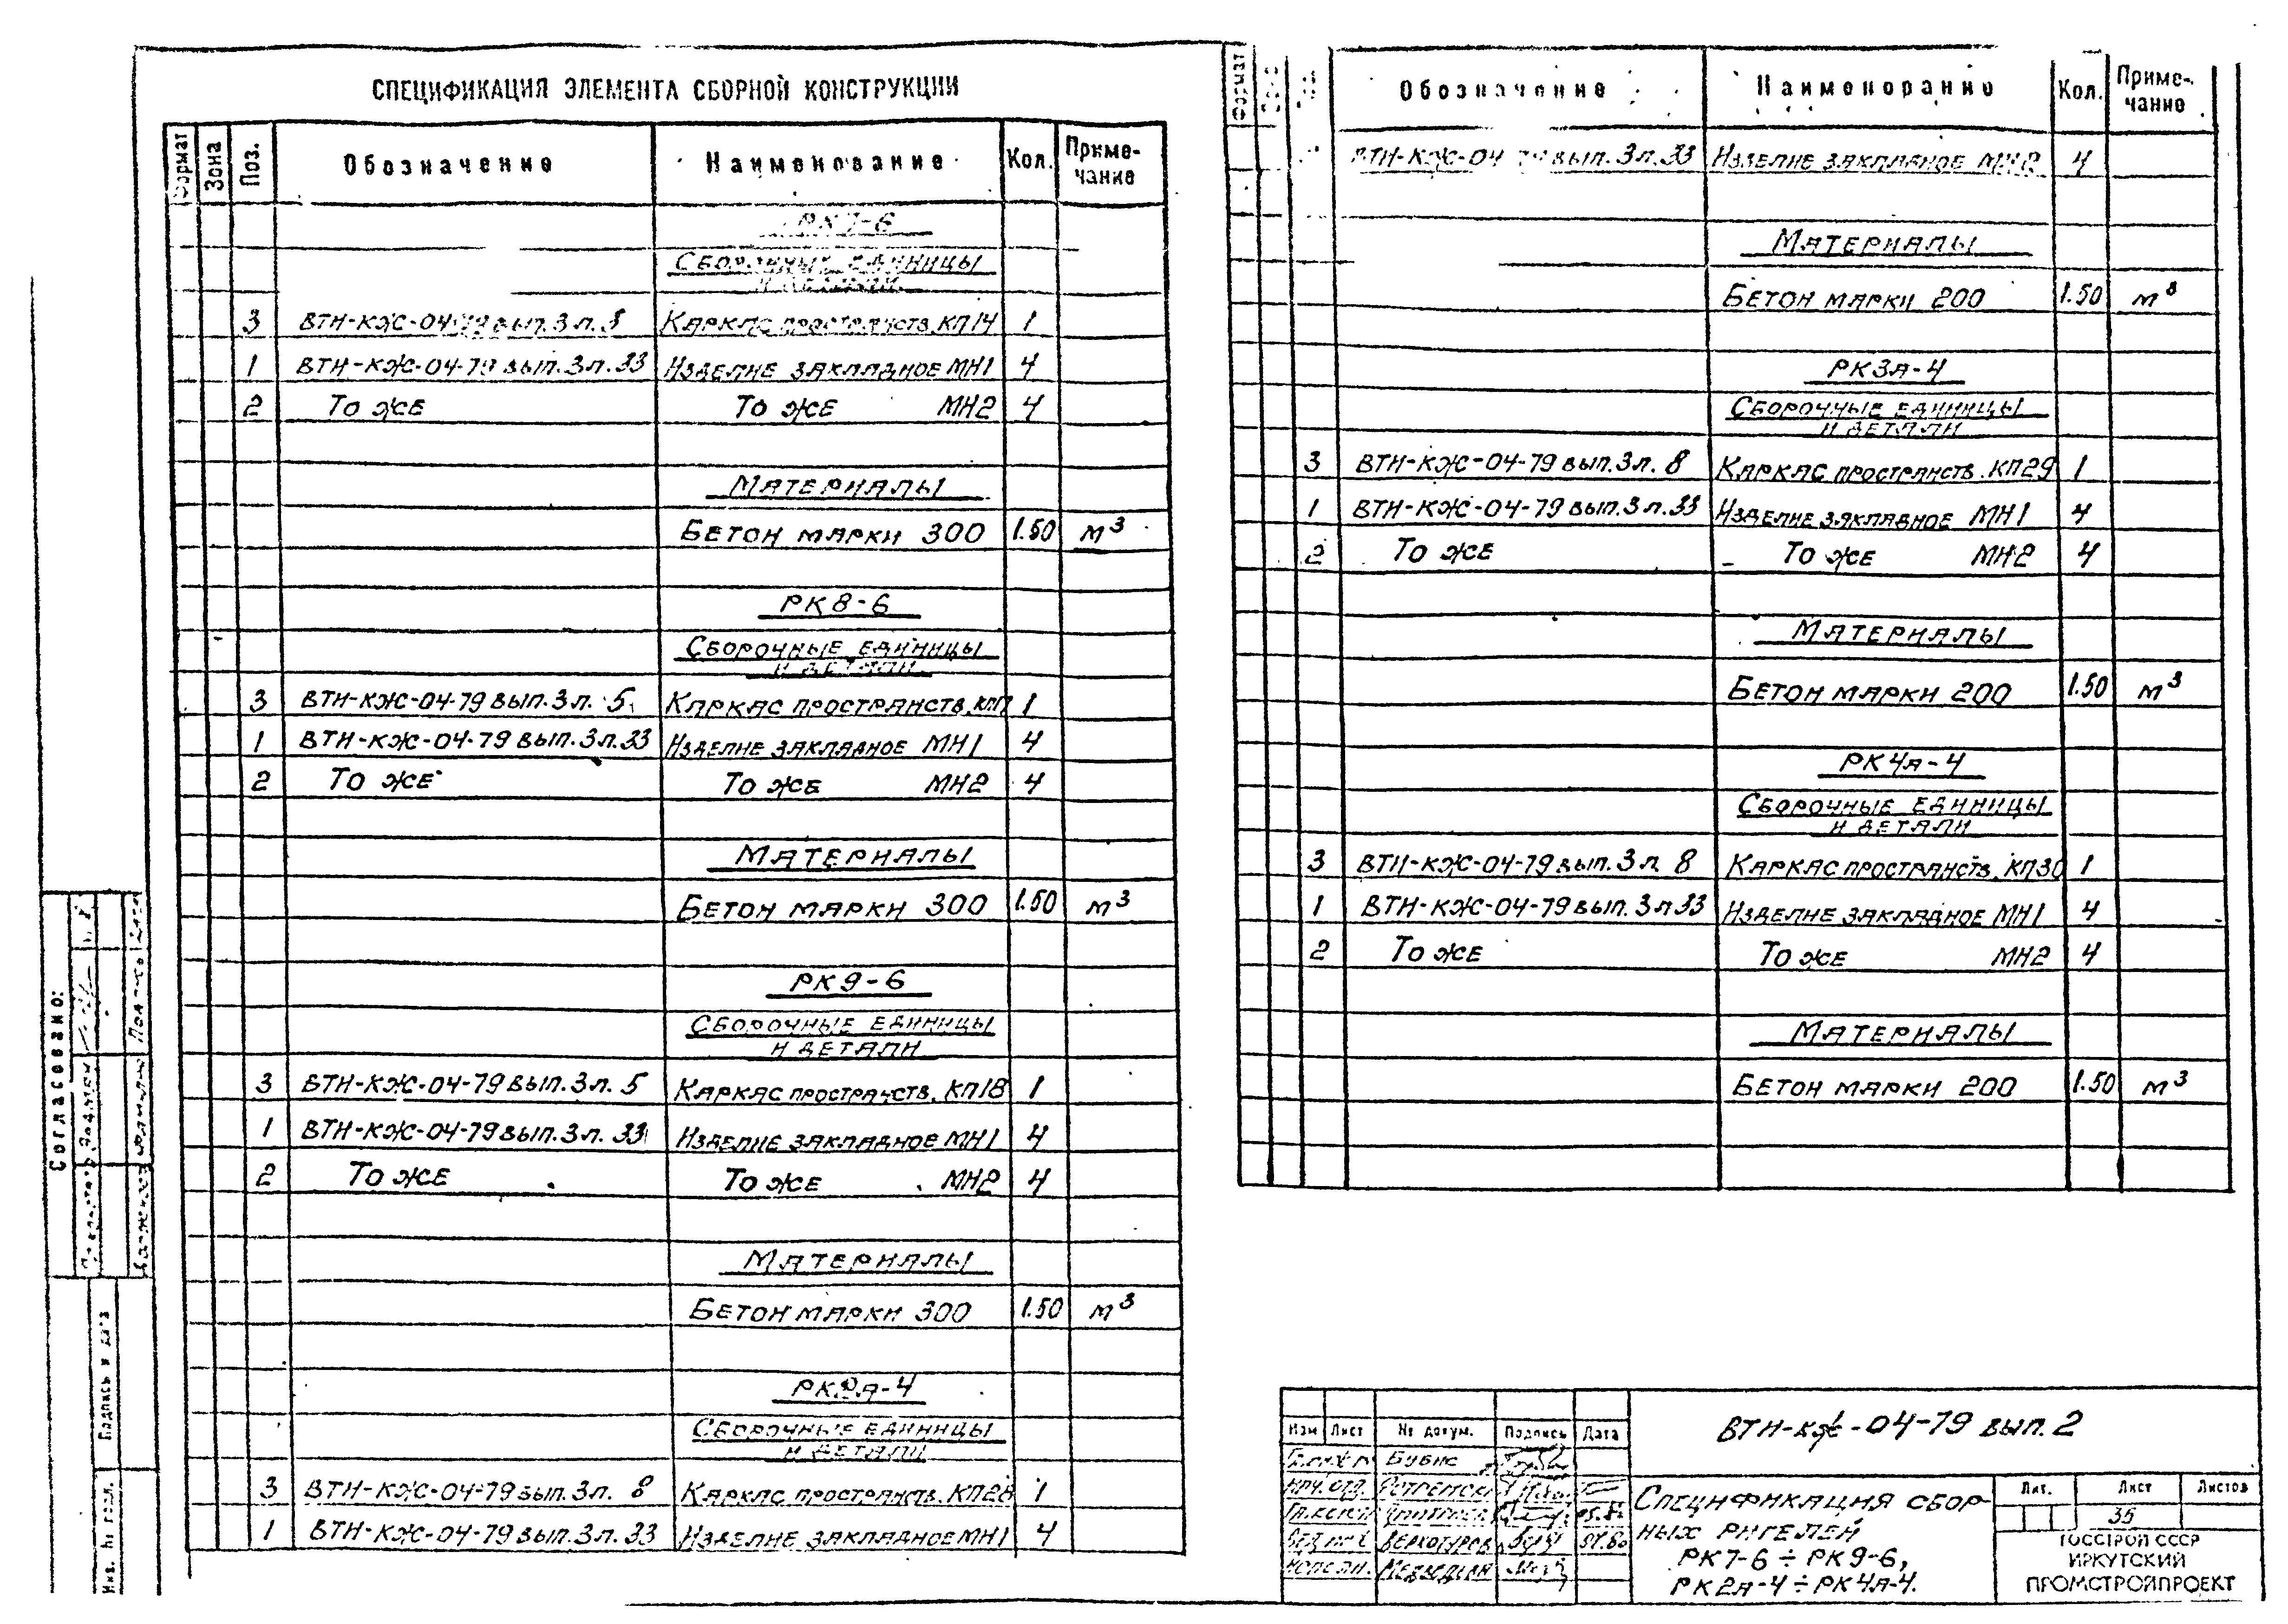 СПЕЦИФИКАЦИЯ ЭЛЕМЕНТА СБОРНОЙ КОНСТРУКЦИИ
Формат Зона Поз. Обозначение Наименование Кол. Приме-
чание
РК7-6
Сборочные единицы
и детали
3 ВТН-КЖ-04-79 вып. 3 л. 8 Каркас пространств. КП14 1
1 ВТН-КЖ-04-79 вып. 3 л. 33 Изделие закладное МН1 4
2 То же То же МН2 4
Материалы
Бетон марки 300 1.50 м³
РК8-6
Сборочные единицы
и детали
3 ВТН-КЖ-04-79 вып. 3 л. 5 Каркас пространств. 1
1 ВТН-КЖ-04-79 вып. 3 л. 33 Изделие закладное МН1 4
2 То же То же МН2 4
Материалы
Бетон марки 300 1.50 м³
РК9-6
Сборочные единицы
и детали
3 ВТН-КЖ-04-79 вып. 3 л. 5 Каркас пространств. КП18 1
1 ВТН-КЖ-04-79 вып. 3 л. 33 Изделие закладное МН1 4
2 То же То же МН2 4
Материалы
Бетон марки 300 1.50 м³
РК2а-4
Сборочные единицы
и детали
3 ВТН-КЖ-04-79 вып. 3 л. 8 Каркас пространств. КП28 1
1 ВТН-КЖ-04-79 вып. 3 л. 33 Изделие закладное МН1 4
Формат Обозначение Наименорание Кол. Приме-
чание
ВТН-КЖ-04-79 вып. 3 л. 33 Изделие закладное МН2 4
Материалы
Бетон марки 200 1.50 м³
РК3а-4
Сборочные единицы
и детали
3 ВТН-КЖ-04-79 вып. 3 л. 8 Каркас пространств. КП29 1
1 ВТН-КЖ-04-79 вып. 3 л. 33 Изделие закладное МН1 4
2 То же То же МН2 4
Материалы
Бетон марки 200 1.50 м³
РК4а-4
Сборочные единицы
и детали
3 ВТН-КЖ-04-79 вып. 3 л. 8 Каркас пространств. КП30 1
1 ВТН-КЖ-04-79 вып. 3 л 33 Изделие закладное МН1 4
2 То же То же МН2 4
Материалы
Бетон марки 200 1.50 м³
Согласовано:
Подпись и дата
Инв. № подл.
Изм Лист № докум. Подпись Дата
Бубис
Нач. отд.
Медведкин
ВТН-КЖ-04-79 вып. 2
Спецификация сбор-
ных ригелей
РК7-6 ÷ РК9-6,
РК2а-4 ÷ РК4а-4.
Лит. Лист Листов
35
ГОССТРОЙ СССР
ИРКУТСКИЙ
ПРОМСТРОЙПРОЕКТ